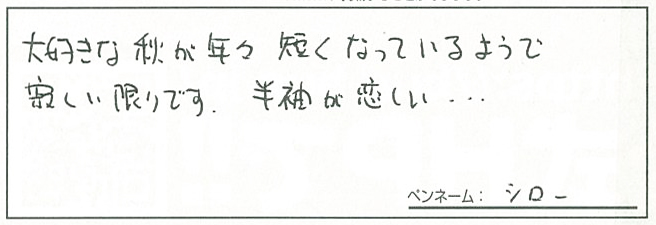 大好きな秋が年々短くなっているようで
寂しい限りです. 半袖が恋しい...
ペンネーム: シロー